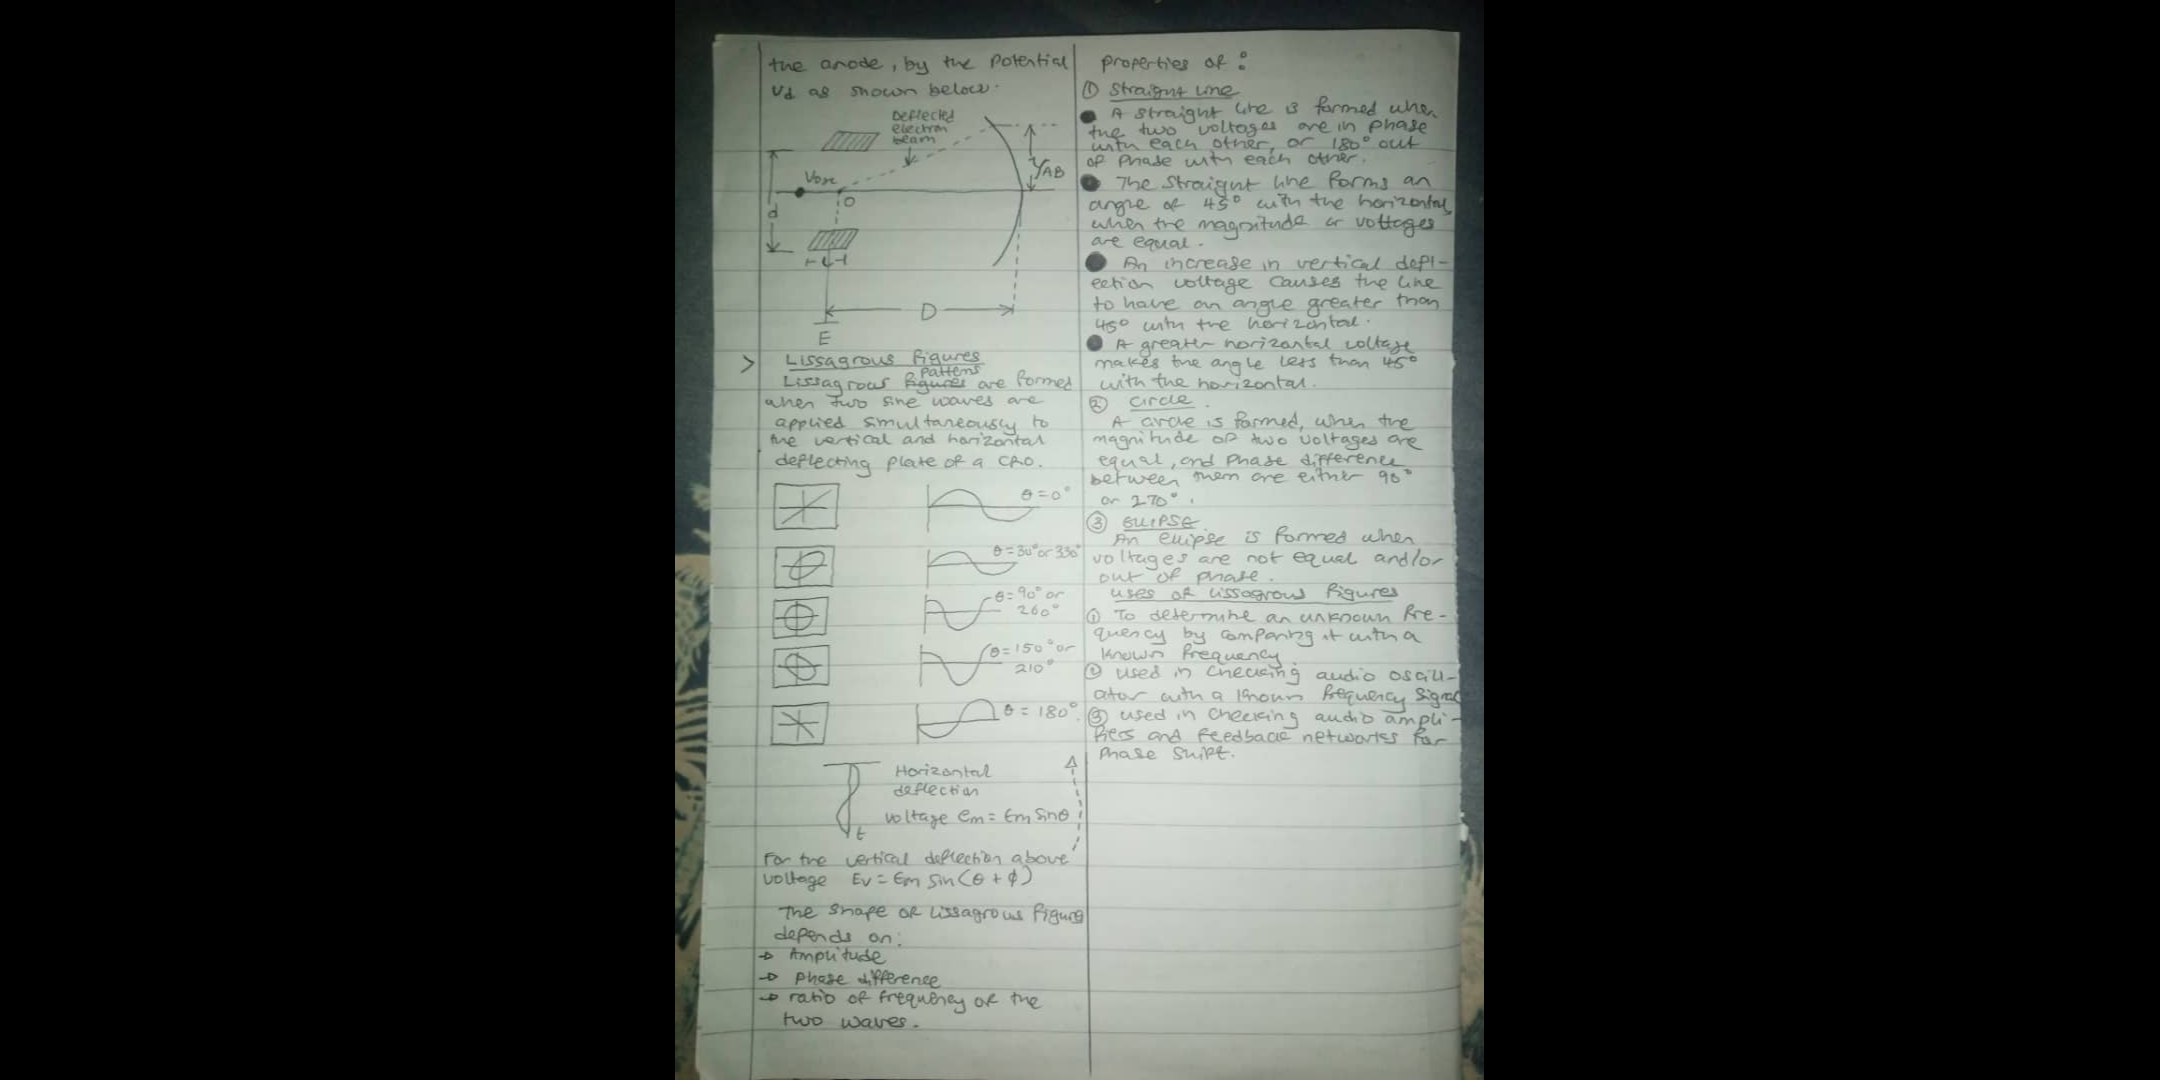 the anode, by the potential
Vd as shown below.
Deflected
electron
beam
YAB
Vox
O
d
D
E
> Lissagrous figures
pattens
Lissagrous figures are formed
when two sine waves are
applied simultaneously to
the vertical and horizontal
deflecting plate of a CRO.
θ = 0°
θ = 30° or 330°
θ = 90° or
260°
θ = 150° or
210°
θ = 180°
Horizontal
deflection
voltage em = Em sinθ
t
For the vertical deflection above
voltage Ev = Em sin(θ + φ)
The shape of lissagrous figure
depends on:
→ Amplitude
→ phase difference
→ ratio of frequency of the
two waves.
properties of :
① Straight line
● A straight line is formed when
the two voltages are in phase
with each other, or 180° out
of phase with each other.
● The straight line forms an
angle of 45° with the horizontal,
when the magnitude of voltages
are equal.
● An increase in vertical defl-
ection voltage causes the line
to have an angle greater than
45° with the horizontal.
● A greater horizontal voltage
makes the angle less than 45°
with the horizontal.
② Circle.
A circle is formed, when the
magnitude of two voltages are
equal, and phase difference
between them are either 90°
or 270°.
③ Ellipse
An ellipse is formed when
voltages are not equal and/or
out of phase.
uses of lissagrous figures
① To determine an unknown fre-
quency by comparing it with a
known frequency.
② used in checking audio oscill-
ator with a known frequency signal
③ used in checking audio ampli-
fiers and feedback networks for
phase shift.